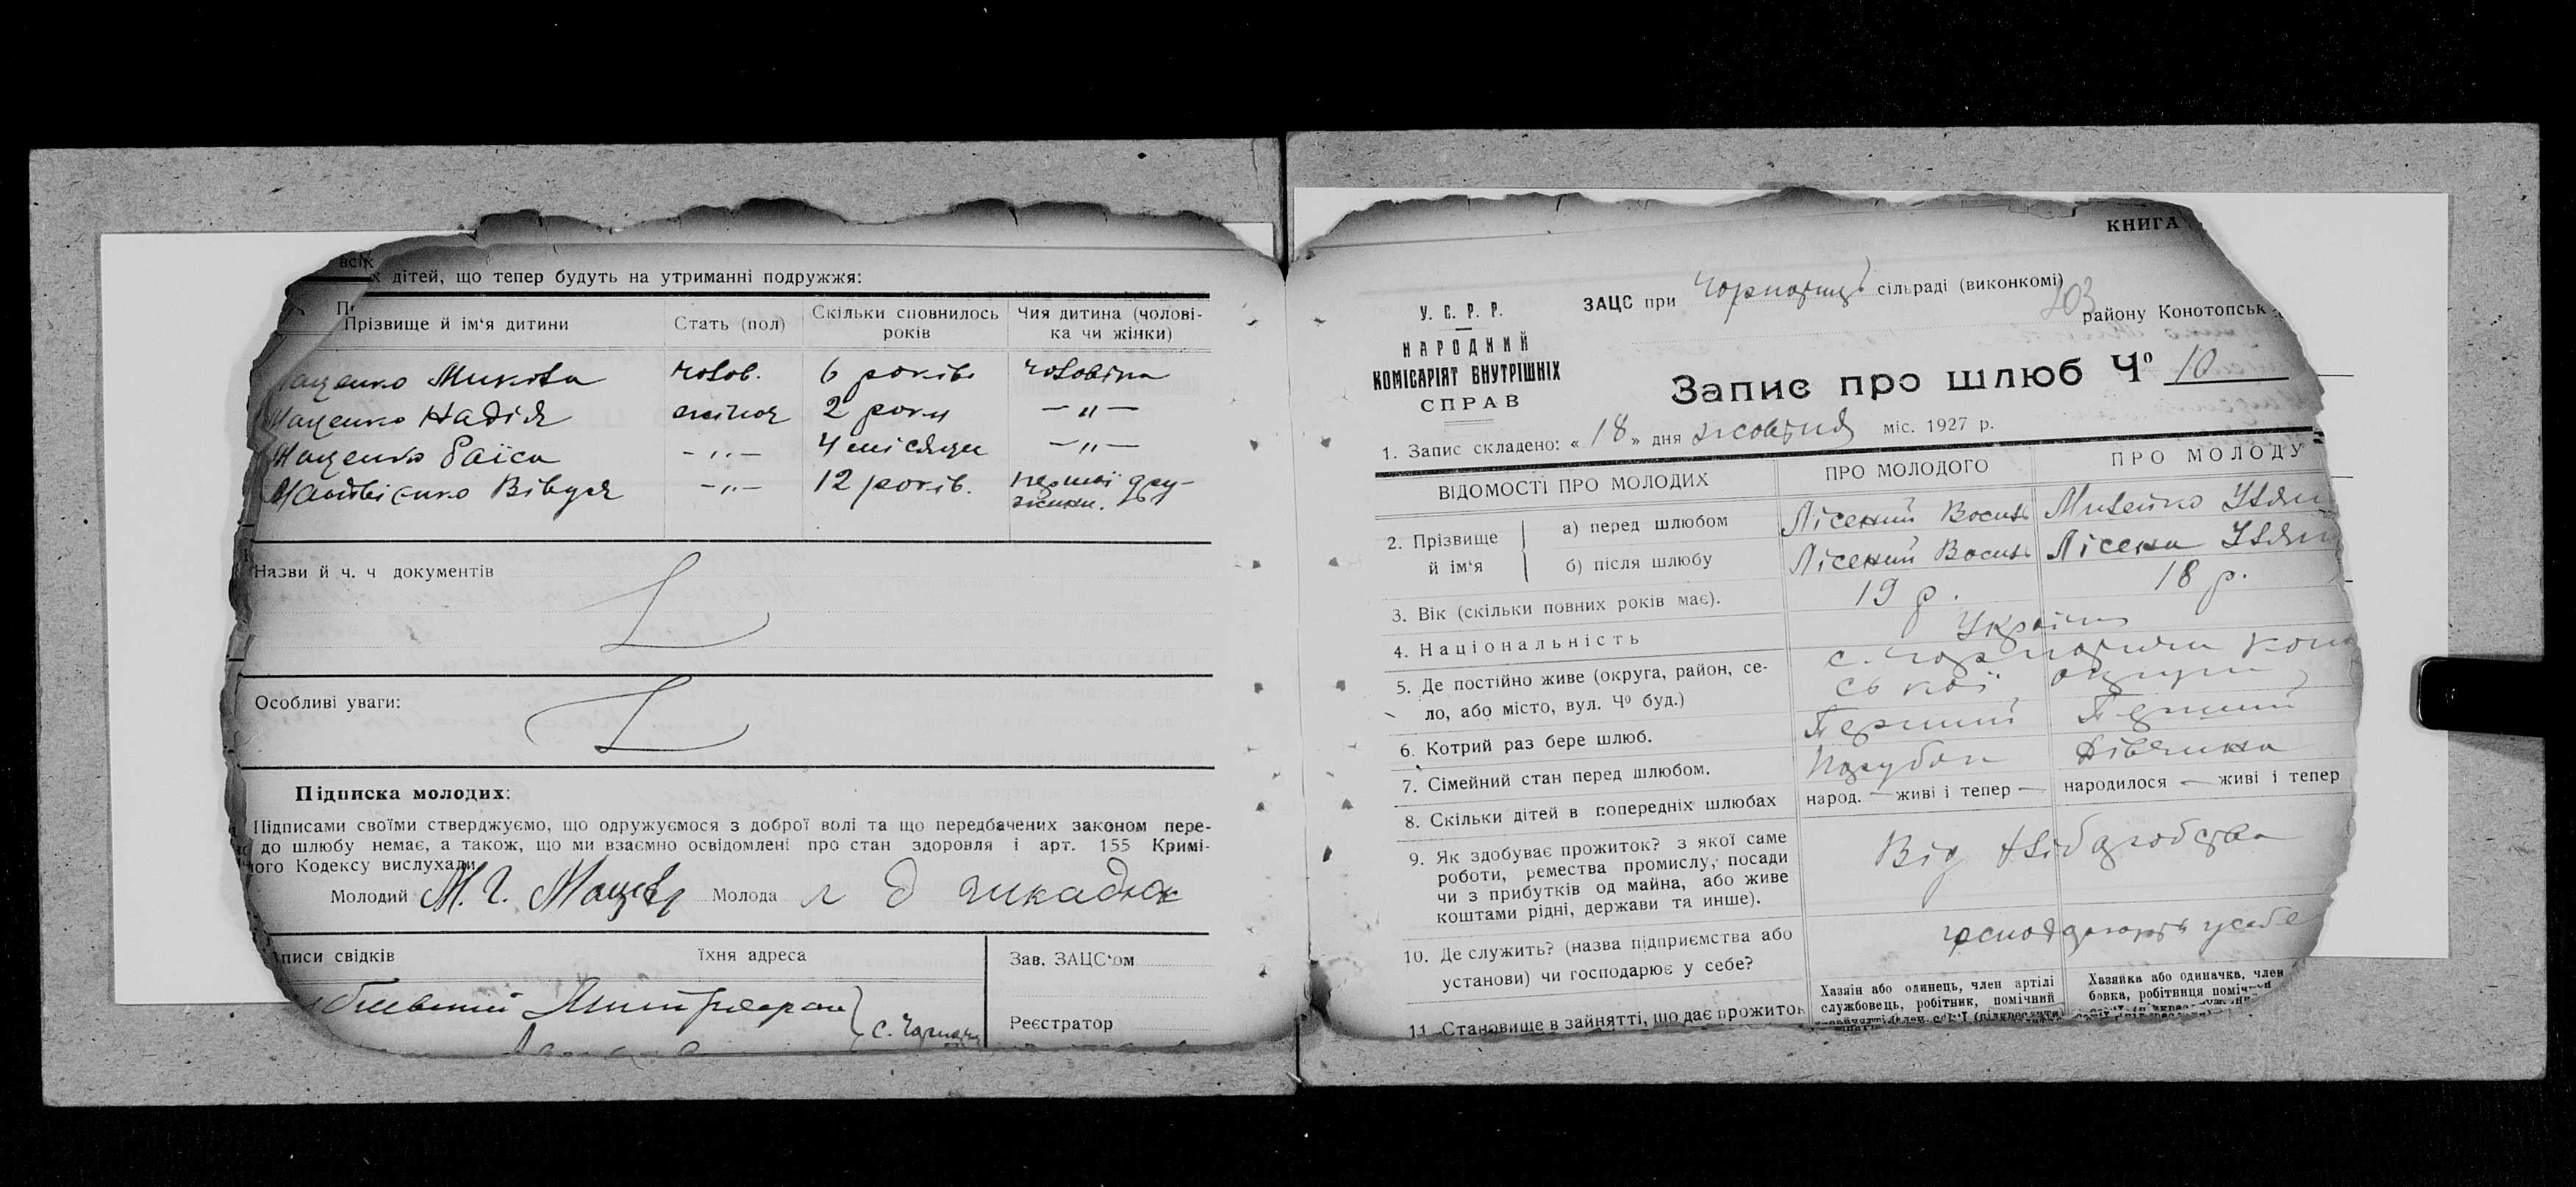 всіх
х дітей, що тепер будуть на утриманні подружжя:
Прізвище й ім‘я дитини
Стать (пол)
Скільки сповнилось років
Чия дитина (чолові-
ка чи жінки)
Микола чолов. 6 років чоловіка
Маценко Надія жіноч 2 роки —„—
Маценко Раїса —„— 4 місяци —„—
Вівдя —„— 12 років. першої дру-
жини.
Назви й ч. ч документів
Особливі уваги:
Підписка молодих:
Підписами своїми стверджуємо, що одружуємося з доброї волі та що передбачених законом пере-
до шлюбу немає, а також, що ми взаємно освідомлені про стан здоровля і арт. 155 Кримі-
ного Кодексу вислухали
Молодий М. Г. Молода
писи свідків
їхня адреса
Зав. ЗАЦС‘ом
Реєстратор
КНИГА
У. С. Р. Р.
НАРОДНИЙ
КОМІСАРІЯТ ВНУТРІШНІХ
СПРАВ
ЗАЦС при сільраді (виконкомі)
203
району Конотопськ
Запис про шлюб Ч⁰ 10
1. Запис складено: « 18 » дня жовтня міс. 1927 р.
ВІДОМОСТІ ПРО МОЛОДИХ
ПРО МОЛОДОГО
ПРО МОЛОДУ
2. Прізвище й ім‘я
а) перед шлюбом Лісений Василь Милейко Улян
б) після шлюбу Лісений Василь Лісена Улян
3. Вік (скільки повних років має). 19 р. 18 р.
4. Національність Україн
5. Де постійно живе (округа, район, се-
ло, або місто, вул. Ч⁰ буд.)
ської округи
6. Котрий раз бере шлюб. Перший Перший
7. Сімейний стан перед шлюбом. Парубок Дівчина
8. Скільки дітей в попередніх шлюбах народ. — живі і тепер — народилося — живі і тепер
9. Як здобуває прожиток? з якої саме
роботи, ремества промислу, посади
чи з прибутків од майна, або живе
коштами рідні, держави та инше).
Від хліборобства
10. Де служить? (назва підприємства або
установи) чи господарює у себе?
господарюють у себе
11. Становище в зайнятті, що дає прожиток
Хазяін або одинець, член артілі
службовець, робітник, помічний
Хазяйка або одиначка, член
бовка, робітниця поміч